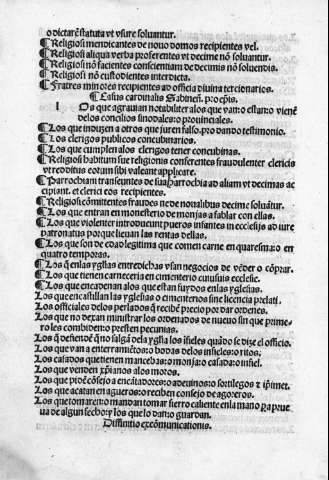 o dictarē statuta vt vsure soluantur.
¶ Religiosi mendicantes de nouo domos recipientes vel.
¶ Religiosi aliqua verba proferentes vt decime nō soluantur.
¶ Religiosi nō facientes conscientiam de decimis nō soluendis.
¶ Religiosi nō custodientes interdicta.
¶ Fratres minores recipientes ad officia diuina tercionarios.
¶ Casus cardinalis Sabineñ. pro epis.
Los que agrauian notabiliter alos que van: o estan: o vienē
delos concilios sinodales: o prouinciales.
¶ Los que induzen a otros que juren falso. pro dando testimonio.
¶ Los clerigos publicos concubinarios.
¶ Los que cumplen alos clerigos tener concubinas.
¶ Religiosi habitum sue religionis conferentes fraudulenter clericis
vt reditus eorum sibi valeant applicare.
¶ Parrochiani transeuntes de sua parrochia ad aliam vt decimas ac
cipiant. et clerici eos recipientes.
¶ Religiosi cōmittentes fraudes ne de noualibus decime soluātur.
¶ Los que entran en monesterio de monjas a fablar con ellas.
¶ Los que violenter introducunt pueros infantes in ecclesijs ad iure
patronatus porque lieuan las rentas dellas.
¶ Los que son de edad legitima que comen carne en quaresma: o en
quatro temporas.
¶ Los q̄ enlas yglias entredichas vsan negocios de vēder o cōprar.
¶ Los que tienen carneceria en cementerio cuiusuis ecclesie.
¶ Los que encadenan alos que estan fuydos enlas yglesias.
Los que encastillan las yglesias o cimenterios sine licencia prelati.
Los officiales delos perlados q̄ recibē precio por dar ordenes.
Los que no dexan ministrar los ordenados de nueuo sin que prime-
ro les combiden: o presten pecunias.
Los q̄ defiendē q̄ no salgā dela yglia los ifieles quādo se dize el officio.
Los que van a enterramiētos: o bodas delos infieles: o ritos.
Los casados que tienen mancebas: o monja: o casada: o infiel.
Los que venden xp̄ianos alos moros.
Los que pidē cōsejo a encātadores: o adeuinos: o sortilegos
Los que acatan en agueros: o reciben consejo de agoreros.
Los que tomaren: o mandan tomar fierro caliente en la mano para prue
ua de algun fecho: y los que lo dan: o guardan.
Diffinitio excōmunicationis.